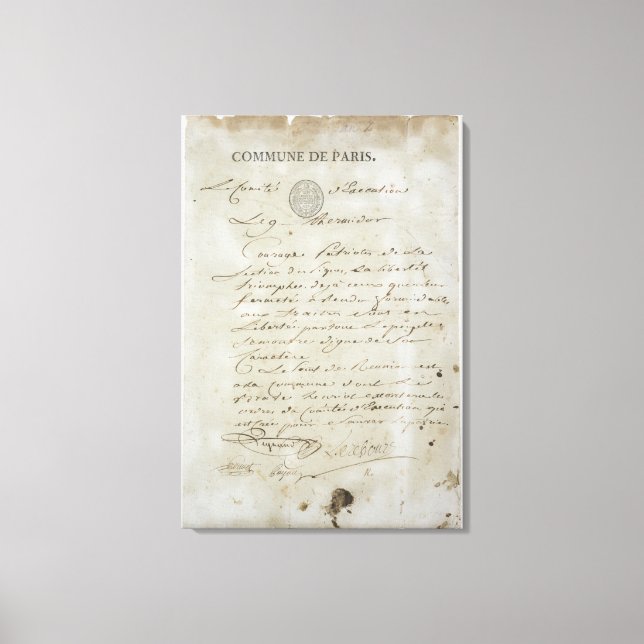 COMMUNE DE PARIS.
Le Comité d'Execution
Le 9 thermidor
Courage Patriotes de la
Section des Piques, la liberté
triomphe deja ceux que leur
fermeté a rendu formidables
aux traitres sont en
Liberté partout le peuple
se montre digne de son
Caractere
Le point de Reunion est
a la Commune dont le
brave henriot executera les
ordres du Comité d'Execution qui
est créé pour sauver la patrie.
Legrand Lerebours
Payan
R